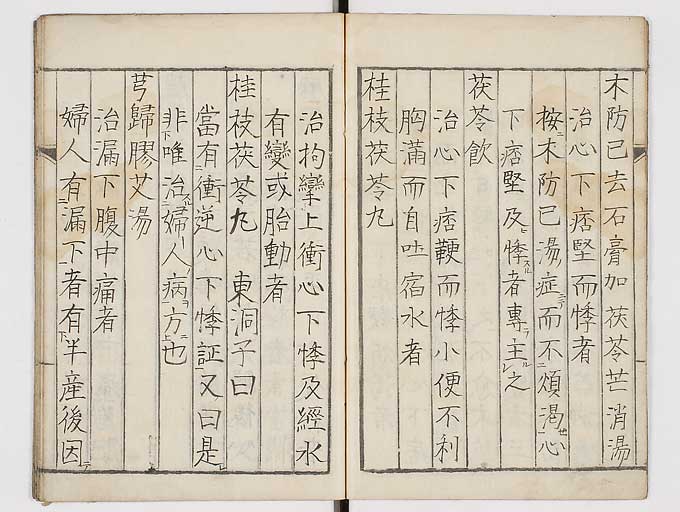 木防已去石膏加茯苓芒消湯
治心下痞堅而悸者
按ニ木防已湯症ニシテ而不煩渇セ心
下痞堅及ヒ悸スル者專ラ主ル之
茯苓飲
治心下痞鞕而悸小便不利
胸滿而自吐宿水者
桂枝茯苓丸
治拘攣上衝心下悸及經水
有變或胎動者
桂枝茯苓丸 東洞子曰
當有ニ衝逆心下悸証一又曰是レ
非下唯治スル婦人ノ病ヲ方上ニ也
芎歸膠艾湯
治漏下腹中痛者
婦人有ニ漏下一者有下半産後因テ